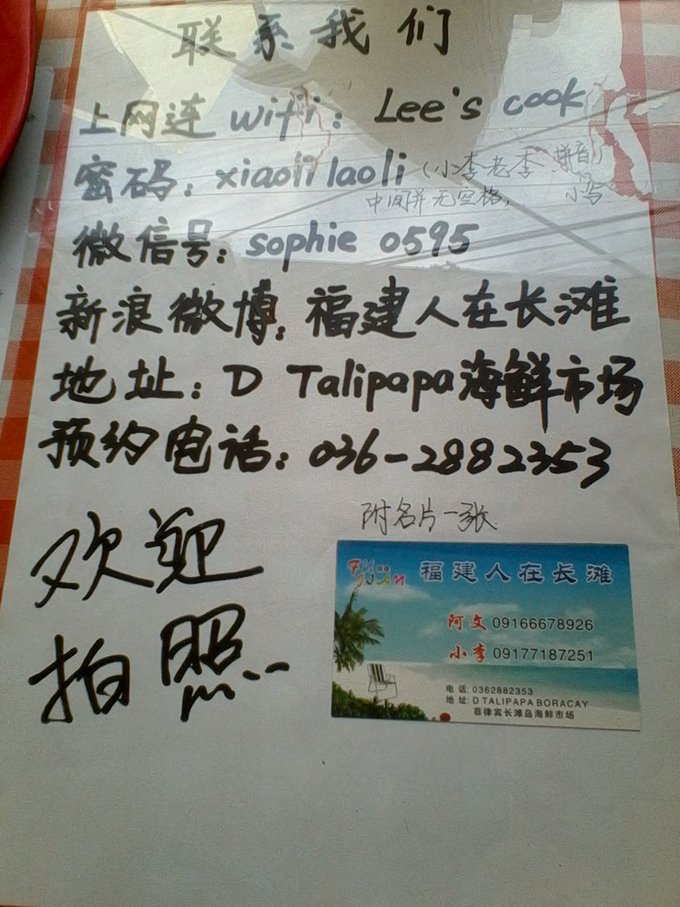 联系我们
上网连wifi：Lee's cook
密码：xiaoli laoli（小李老李 拼音）
中间并无空格，小写
微信号：sophie 0595
新浪微博：福建人在长滩
地址：D Talipapa海鲜市场
预约电话：036-2882353
附名片一张
欢迎
拍照
FU 福建
JIAN
福建人在长滩
阿文 09166678926
小李 09177187251
电话: 0362882353
地址: D TALIPAPA BORACAY
菲律宾长滩岛海鲜市场